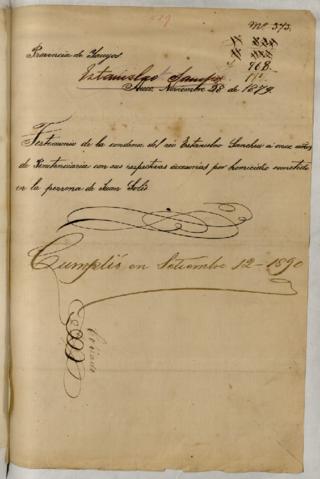 Nº 373.
Provincia de
968
Estanislao
Noviembre 28 de 1879.
Testimonio de la condena del reo Estanislao Sanchez a once años
de Penitenciaria con sus respectivas accesorias por homicidio cometido
en la persona de Juan Solis
Cumplió en Setiembre 12-1890